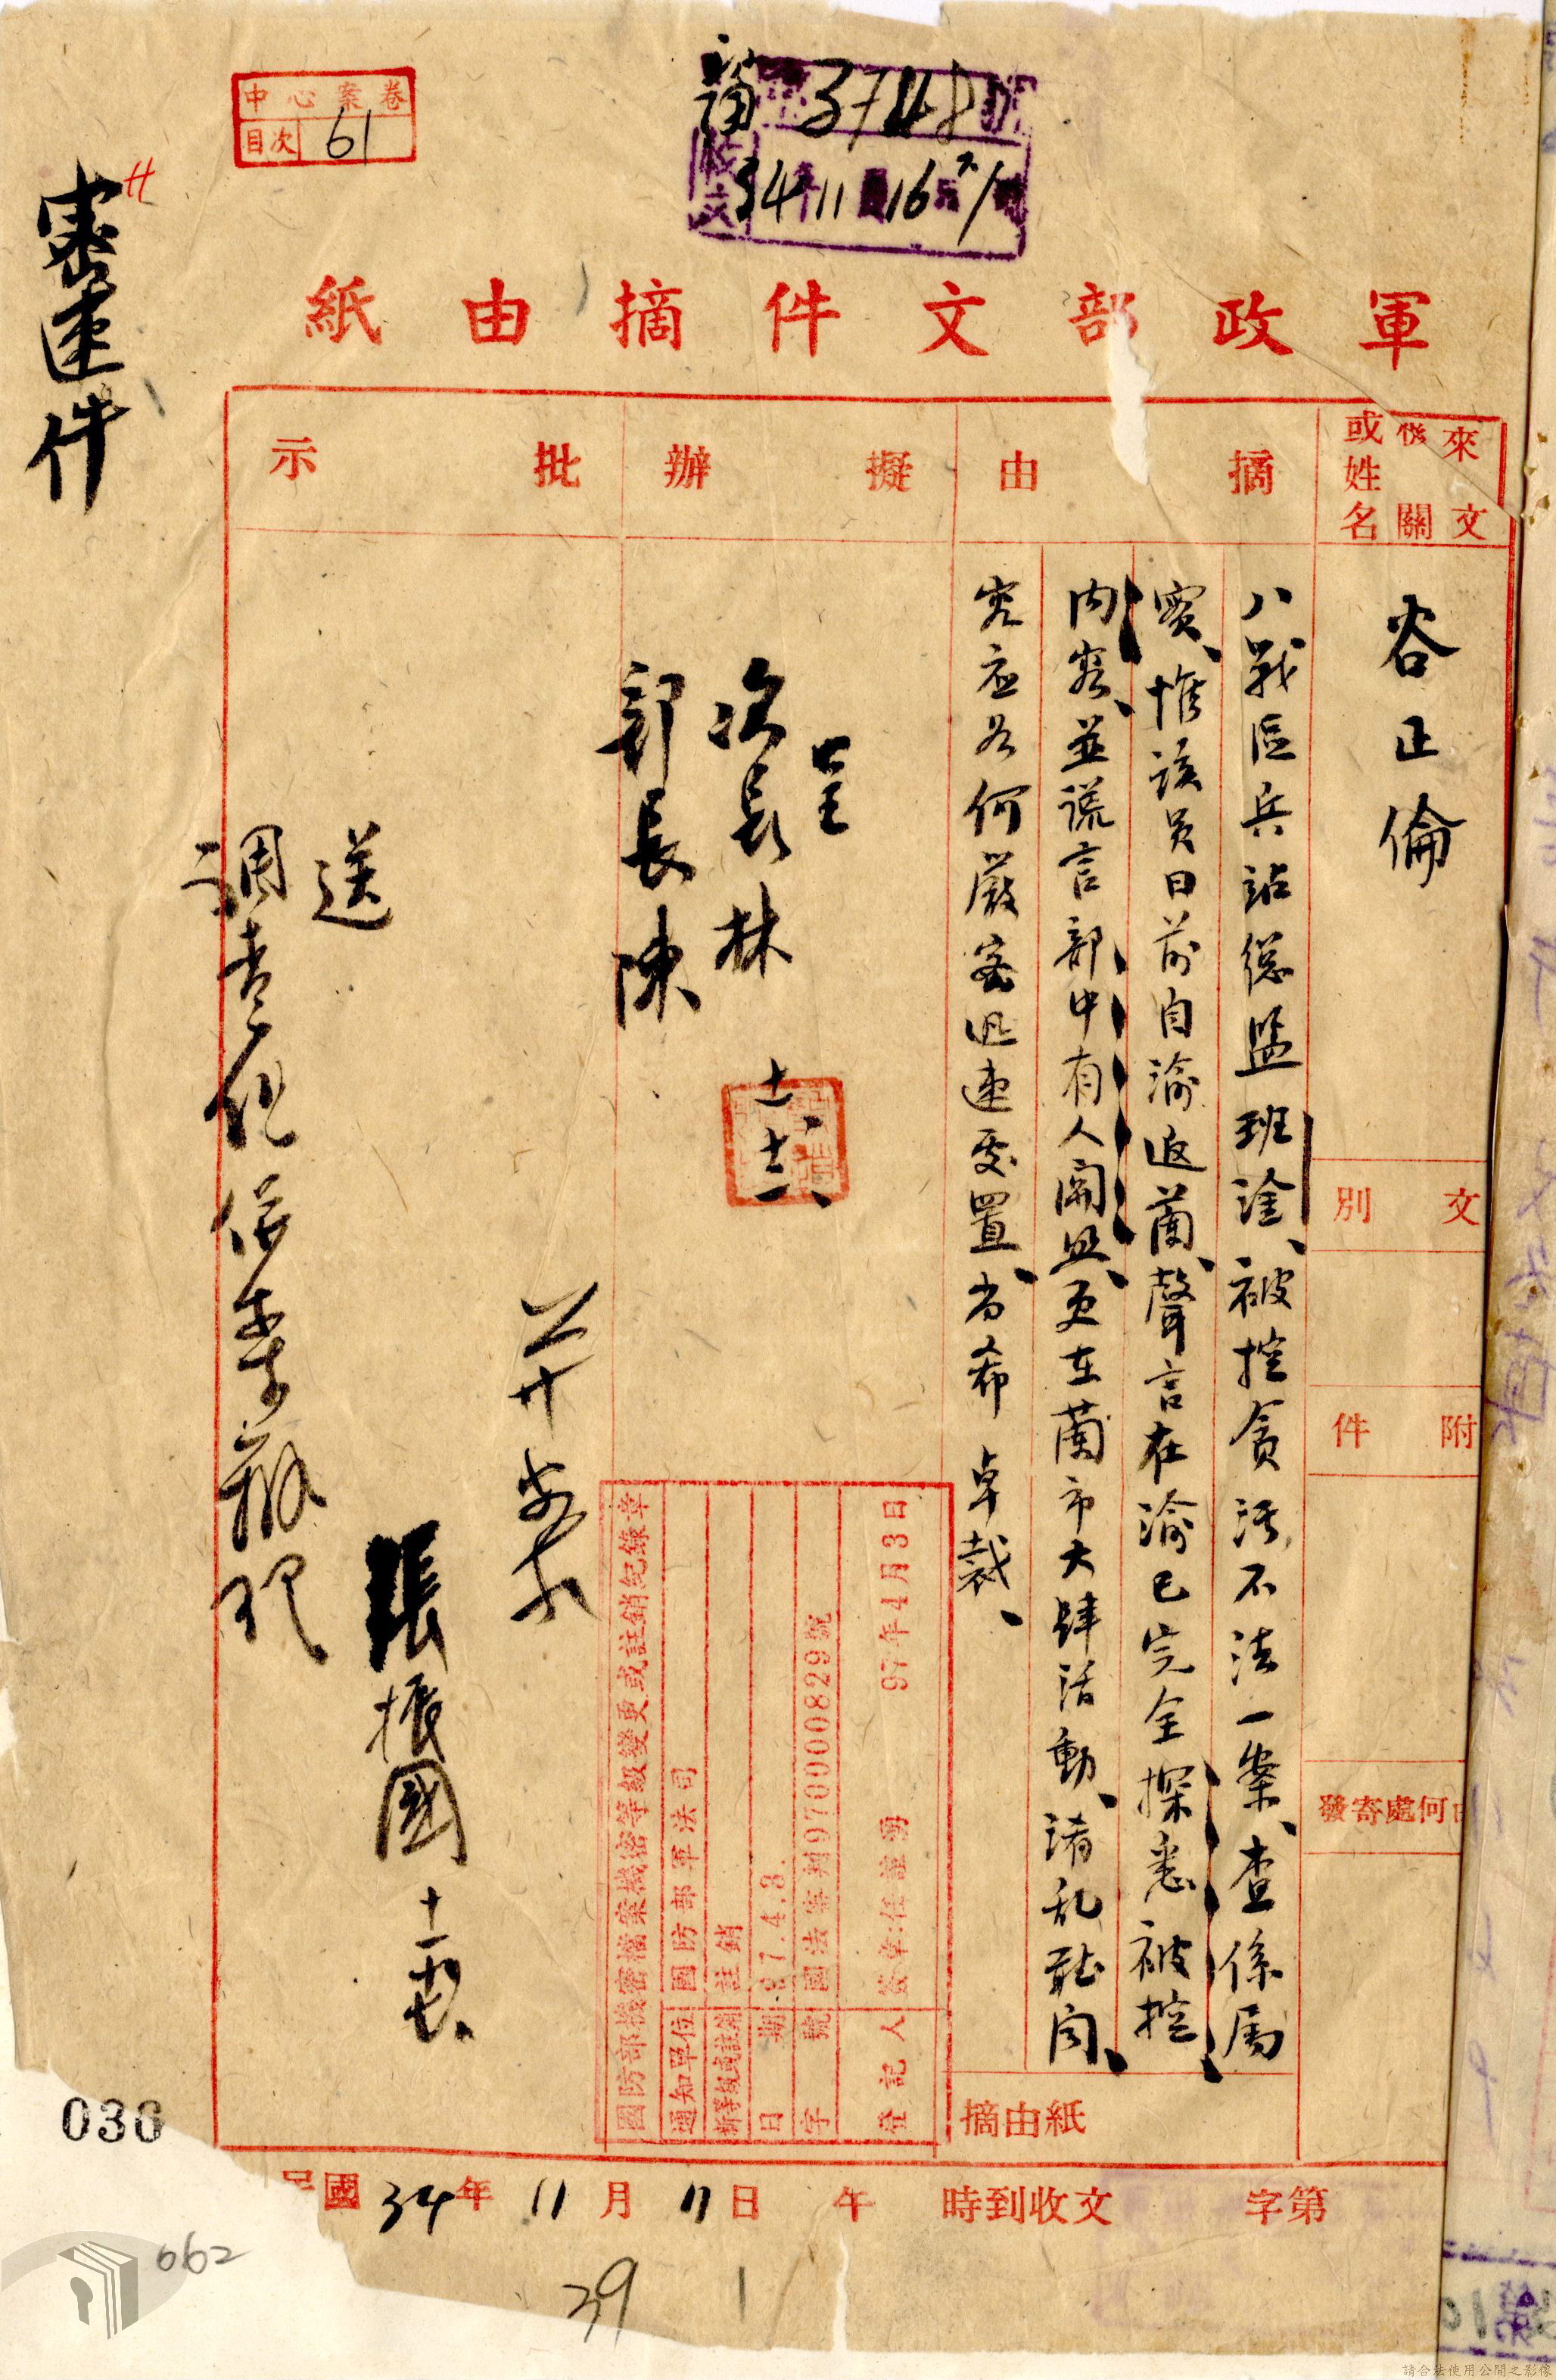 中心案卷
目次 61
34年11月16日
密速件
軍政部文件摘由紙
來文機關或姓名
摘由
擬辦
批示
谷正倫
文別
附件
由何處寄發
八戰區兵站總監班淦、被控貪污不法一案、查係屬
實、惟該員日前自渝返蘭、聲言在渝已完全探悉被控
內容、並謊言部中有人關照、更在蘭市大肆活動、淆乱聽聞、
究应如何嚴密迅速处置、尚希 卓裁、
呈
次長林
部長陳
十一、十六、
送
調查組併案辦理
張振國
國防部機密檔案機密等級變更或註銷紀錄章
通知單位 國防部軍法司
新等級或註銷 註銷
日期 97.4.3.
字號 國法審判970000829號
登記人 簽章:任誼湧 97年4月3日
摘由紙
第字
文收到時
午
民國34年11月17日
036
662
39
1
請合法使用公開之影像